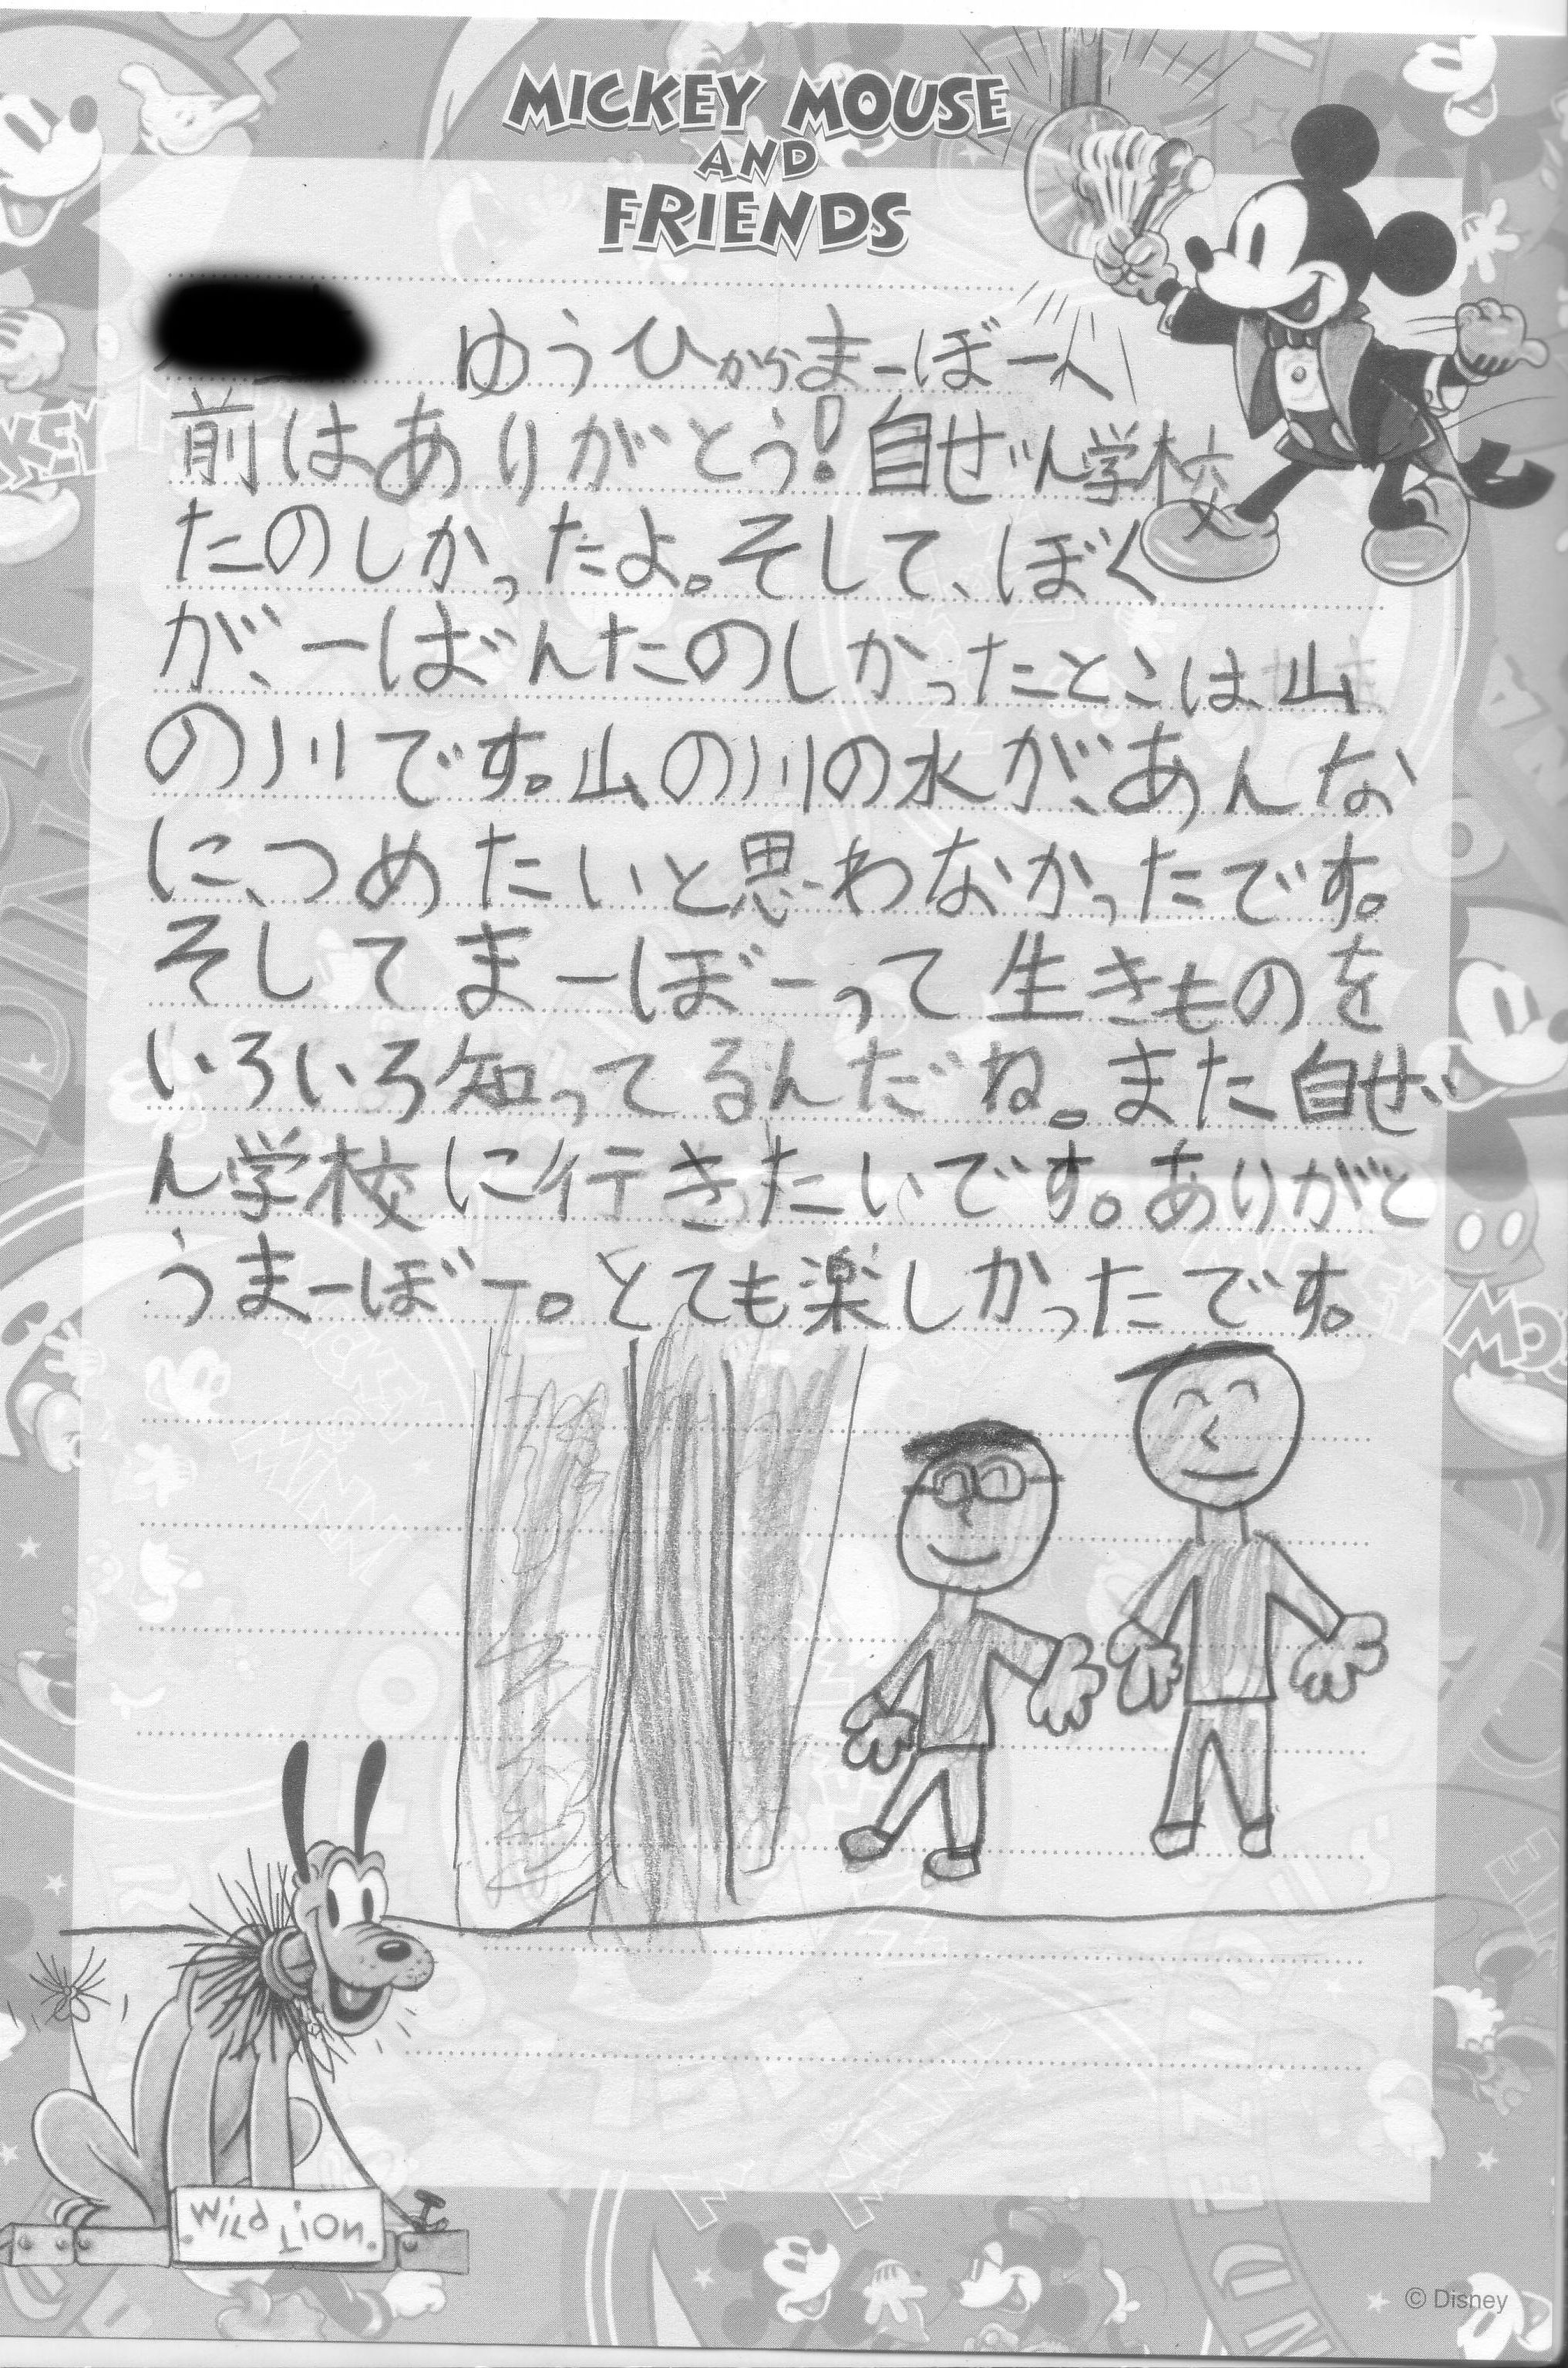 MICKEY MOUSE
AND
FRIENDS
ゆうひからまーぼーへ
前はありがとう!自ぜん学校
たのしかったよ。そして、ぼく
が、一ばんたのしかったとこは、山
の川です。山の川の水が、あんな
に、つめたいと思わなかったです。
そしてまーぼーって生きものを
いろいろ知ってるんだね。また自ぜ
ん学校に行きたいです。ありがと
うまーぼー。とても楽しかったです。
Wild Lion.
© Disney